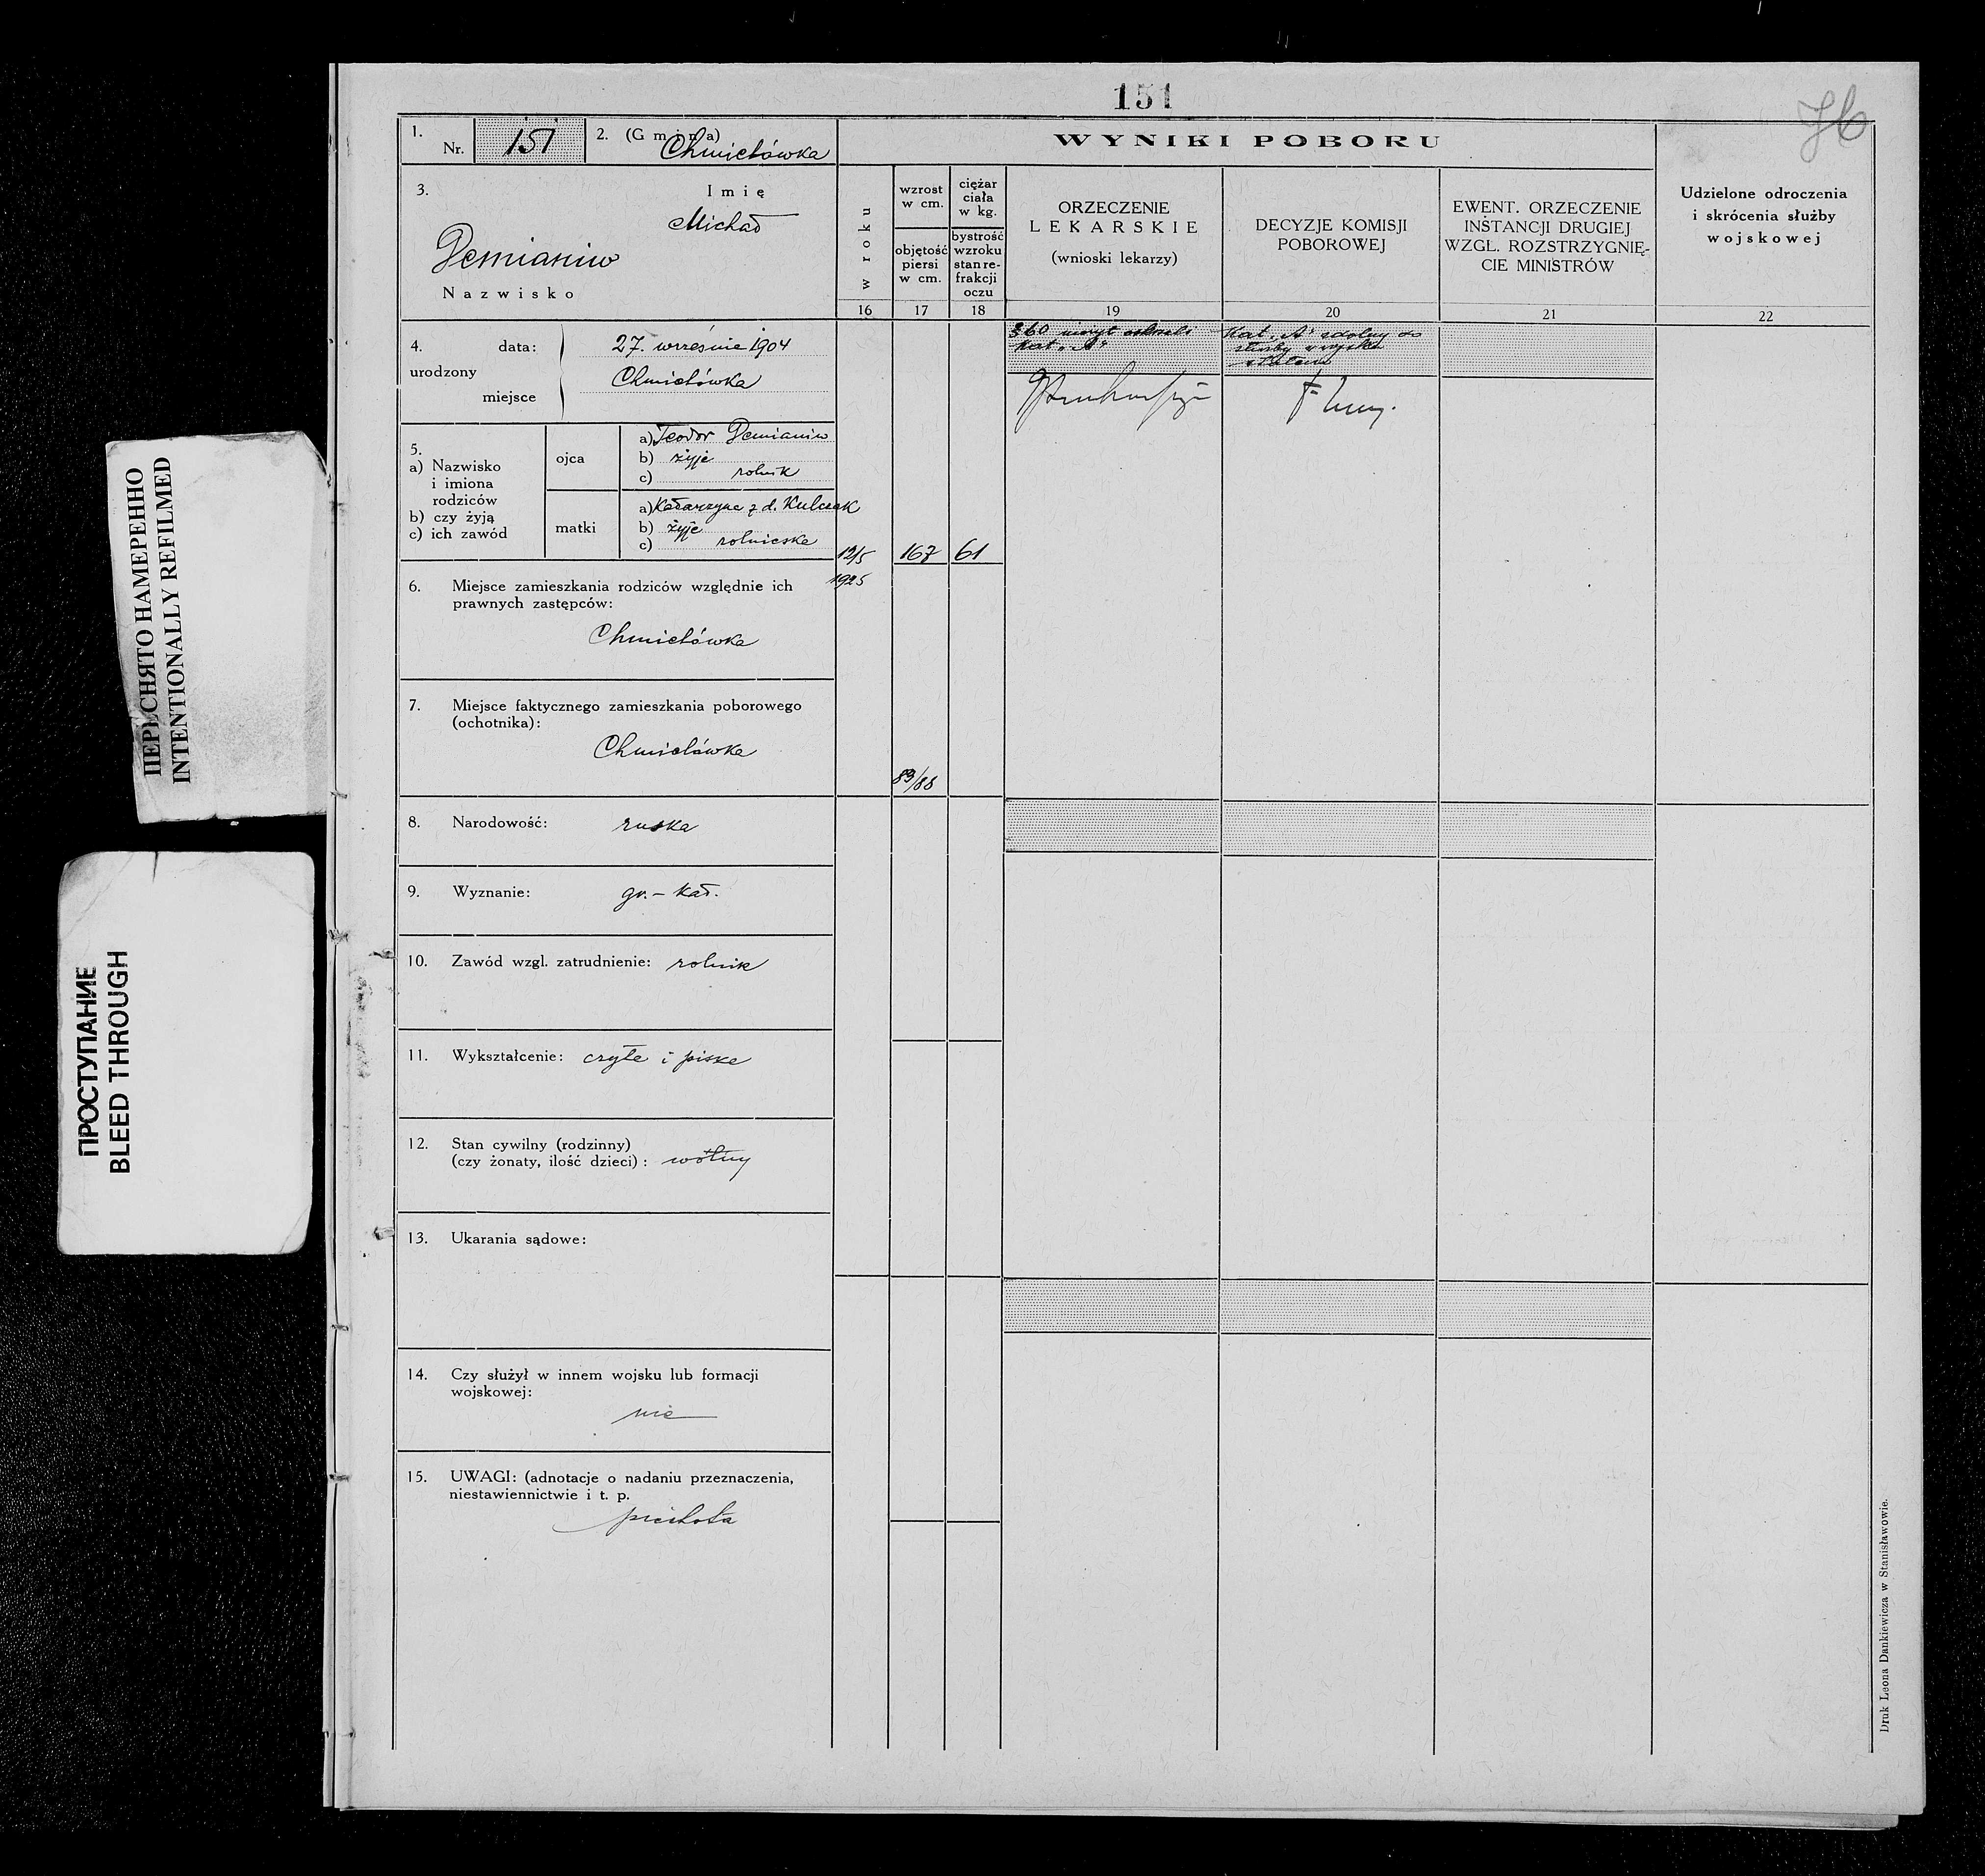 151
76
1. Nr. 151 2. (Gmina) Chmielówka
3. Imię
Michał
Demianiw
Nazwisko
4. urodzony data: 27. września 1904
miejsce Chmielówka
5.
a) Nazwisko i imiona rodziców
b) czy żyją
c) ich zawód
ojca
a) Teodor Demianiw
b) żyje
c) rolnik
matki
a) Katarzyna z d. Kulczak
b) żyje
c) rolniczka
6. Miejsce zamieszkania rodziców względnie ich
prawnych zastępców:
Chmielówka
7. Miejsce faktycznego zamieszkania poborowego
(ochotnika):
Chmielówka
8. Narodowość: ruska
9. Wyznanie: gr.-kat.
10. Zawód wzgl. zatrudnienie: rolnik
11. Wykształcenie: czyta i pisze
12. Stan cywilny (rodzinny)
(czy żonaty, ilość dzieci): wolny
13. Ukarania sądowe:
14. Czy służył w innem wojsku lub formacji
wojskowej:
nie
15. UWAGI: (adnotacje o nadaniu przeznaczenia,
niestawiennictwie i t. p.
piechota
WYNIKI POBORU
w roku
wzrost
w cm.
objętość
piersi
w cm.
ciężar
ciała
w kg.
bystrość
wzroku
stan re-
frakcji
oczu
ORZECZENIE
LEKARSKIE
(wnioski lekarzy)
DECYZJE KOMISJI
POBOROWEJ
EWENT. ORZECZENIE
INSTANCJI DRUGIEJ
WZGL. ROZSTRZYGNIĘ-
CIE MINISTRÓW
Udzielone odroczenia
i skrócenia służby
wojskowej
16 17 18 19 20 21 22
12/5
1925
167
61
89/88
360
kat. „A"
Kat. „A" zdolny do
służby w wojsku
stałem
Druk Leona Dankiewicza w Stanisławowie.
ПЕРЕСНЯТО НАМЕРЕННО
INTENTIONALLY REFILMED
ПРОСТУПАНИЕ
BLEED THROUGH